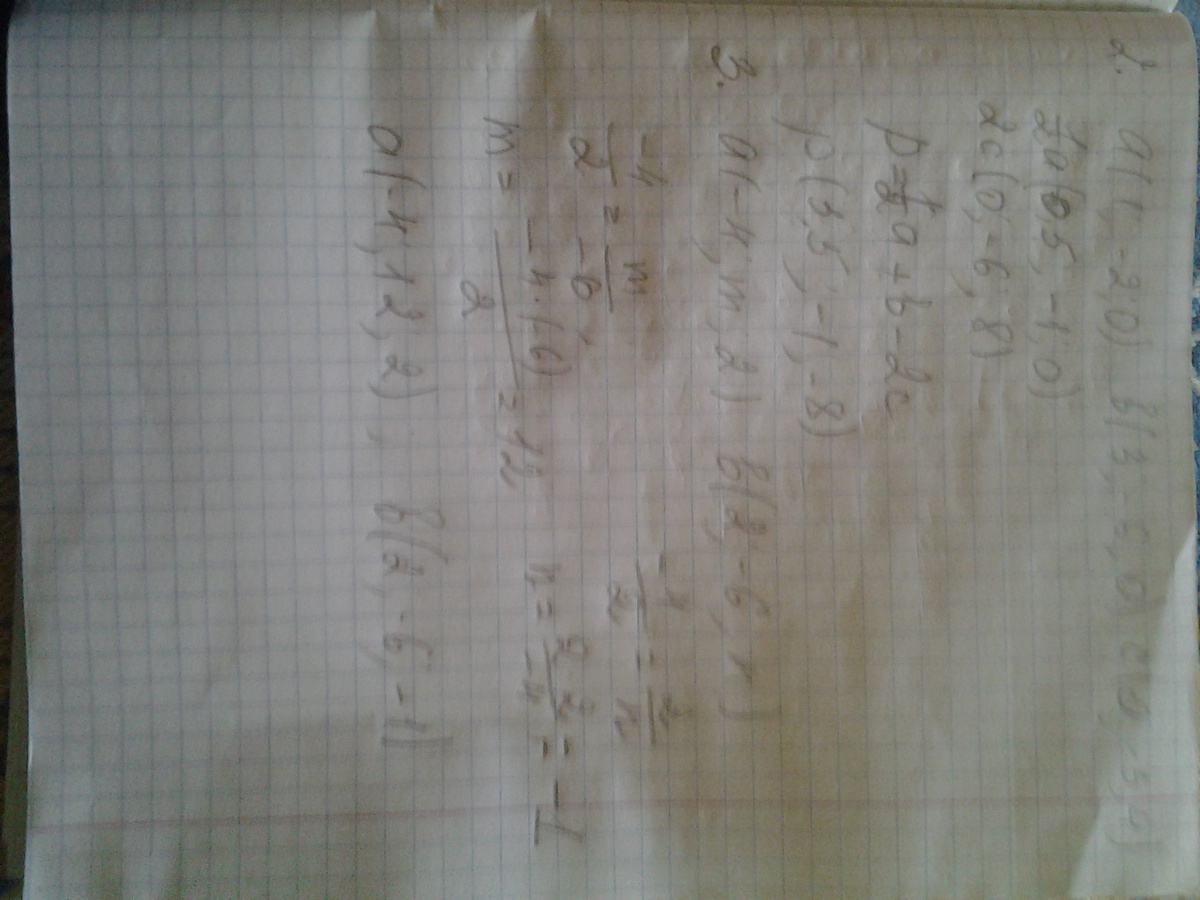 2. a(1,-2,0) b(3
½a(0,5, -1, 0)
2c(0,-6, 8)
p=½a+b-2c
p(3,5, -1, -8)
3. a(-4, m, 2) b(2,-6, n)
-4/2 = m/-6, -4/2 = 2/n
m = -4·(-6)/2 = 12 n = 2·2/-4 = -1
a(-4, 12, 2), b(2, -6, -1)